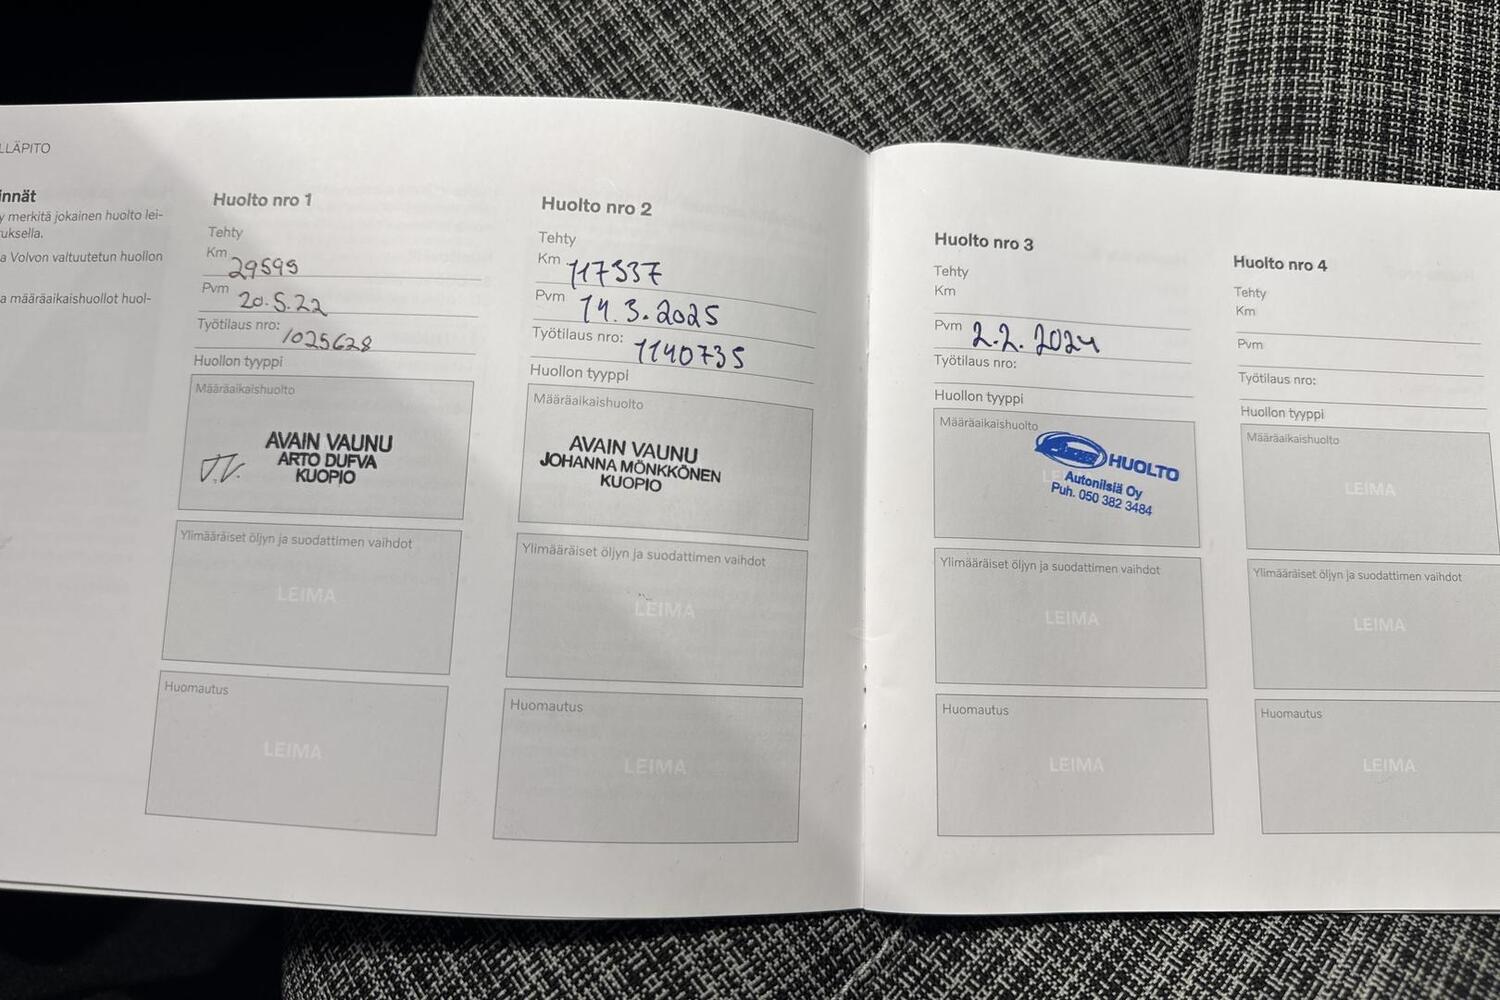 LLÄPITO
innät
y merkitä jokainen huolto lei-
uksella.
a Volvon valtuutetun huollon
a määräaikaishuollot huol-
Huolto nro 1
Tehty
Km 29595
Pvm 20.5.22
Työtilaus nro: 1025628
Huollon tyyppi
Määräaikaishuolto
AVAIN VAUNU
ARTO DUFVA
KUOPIO
Ylimääräiset öljyn ja suodattimen vaihdot
LEIMA
Huomautus
LEIMA
Huolto nro 2
Tehty
Km 117337
Pvm 14.3.2025
Työtilaus nro: 1140735
Huollon tyyppi
Määräaikaishuolto
AVAIN VAUNU
JOHANNA MÖNKKÖNEN
KUOPIO
Ylimääräiset öljyn ja suodattimen vaihdot
LEIMA
Huomautus
LEIMA
Huolto nro 3
Tehty
Km
Pvm 2.2.2024
Työtilaus nro:
Huollon tyyppi
Määräaikaishuolto
HUOLTO
Autonilsiä Oy
Puh. 050 382 3484
Ylimääräiset öljyn ja suodattimen vaihdot
LEIMA
Huomautus
LEIMA
Huolto nro 4
Tehty
Km
Pvm
Työtilaus nro:
Huollon tyyppi
Määräaikaishuolto
LEIMA
Ylimääräiset öljyn ja suodattimen vaihdot
LEIMA
Huomautus
LEIMA